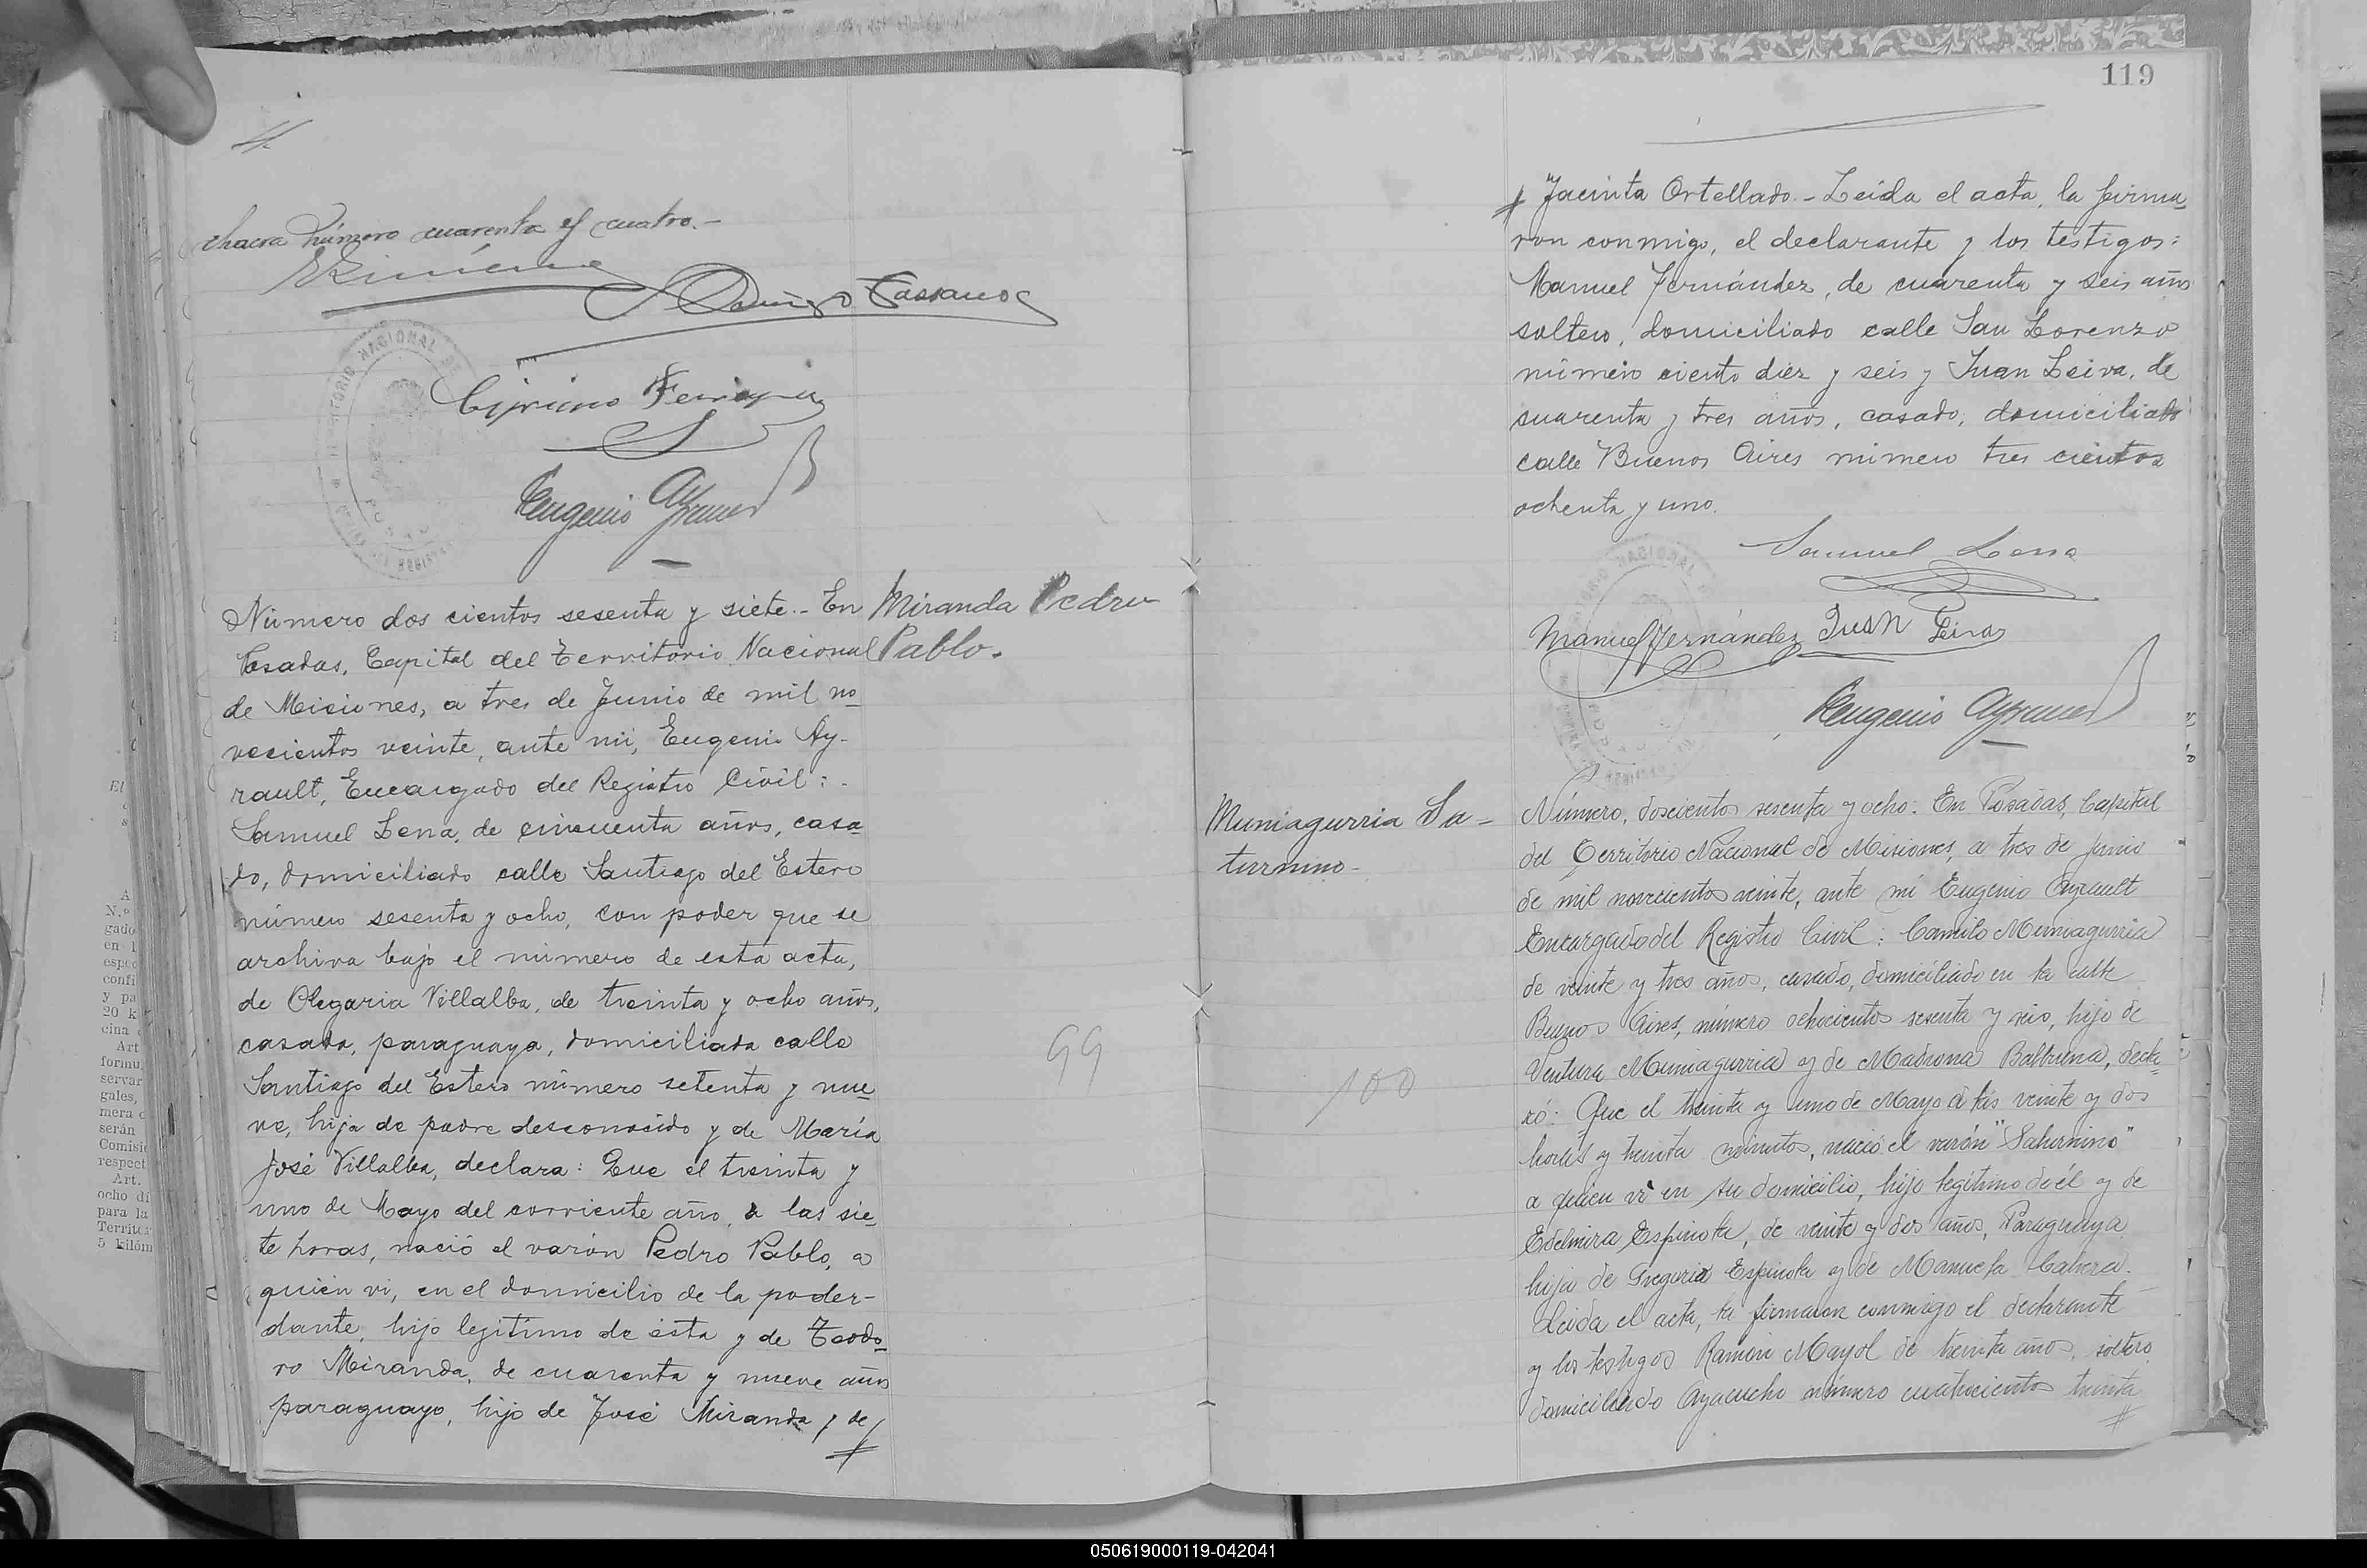 chacra número cuarenta y cuatro.-
Cipriano
Eugenio Ayrault
Número dos cientos sesenta y siete.- En
Posadas, Capital del Territorio Nacional
de Misiones, a tres de Junio de mil no
vecientos veinte, ante mi, Eugenio Ay-
rault, Encargado del Registro Civil:.
Samuel Lena, de cincuenta años, casa
do, domiciliado calle Santiago del Estero
número sesenta y ocho, con poder que se
archiva bajo el número de esta acta,
de Olegaria Villalba, de treinta y ocho años,
casada, paraguaya, domiciliada calle
Santiago del Estero número setenta y nue
ve, hija de padre desconocido y de María
José Villalba, declara: Que el treinta y
uno de Mayo del corriente año, a las sie
te horas, nació el varón Pedro Pablo, a
quién vi, en el domicilio de la poder-
dante, hijo legítimo de ésta y de Teodo
ro Miranda, de cuarenta y nueve años
paraguayo, hijo de José Miranda y de
Miranda Pedro
Pablo.
99
119
Jacinta Ortellado.- Leida el acta, la firma
ron conmigo, el declarante y los testigos:
Manuel Fernández, de cuarenta y seis años
soltero, domiciliado calle San Lorenzo
número ciento diez y seis y Juan Leiva, de
cuarenta y tres años, casado, domiciliado
calle Buenos Aires número tres cientos
ochenta y uno.
Samuel Lena
Manuel Fernández Juan Leiva
Eugenio Ayrault
Muniagurria Sa-
turnino-
100
Número, doscientos sesenta y ocho: En Posadas, Capital
del Territorio Nacional de Misiones, a tres de Junio
de mil novecientos veinte, ante mi Eugenio Ayrault
Encargado del Registro Civil: Camilo Muniagurria
de veinte y tres años, casado, domiciliado en la calle
Buenos Aires, número ochocientos sesenta y seis, hijo de
Ventura Muniagurria y de Madrona, decla
ró: Que el treinta y uno de Mayo a las veinte y dos
horas y treinta minutos, nació el varón "Saturnino"
a quien vi en su domicilio, hijo legítimo de él y de
Edelmira Espinola, de veinte y dos años, Paraguaya
hija de Gregorio Espinola y de Manuela Cabrera.
Leida el acta, la firmaron conmigo el declarante
y los testigos Ramón Mayol de treinta años, soltero
domiciliado Ayacucho número cuatrocientos treinta
050619000119-042041